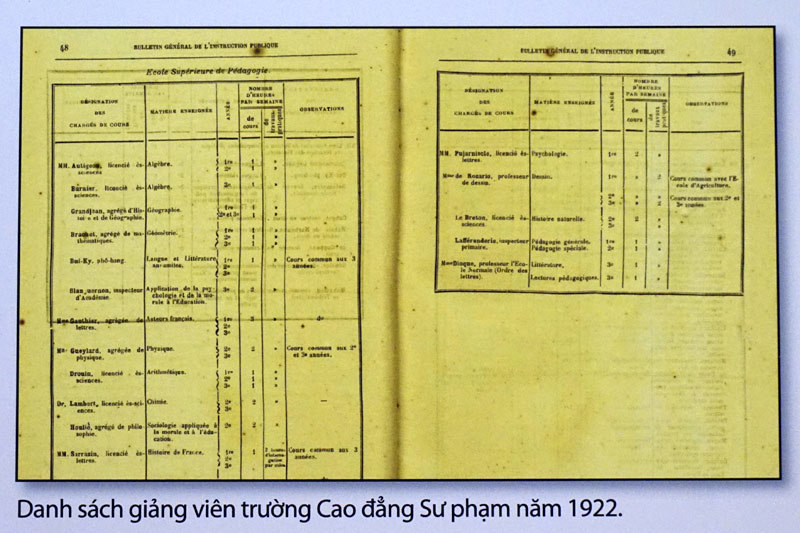 48
BULLETIN GÉNÉRAL DE L'INSTRUCTION PUBLIQUE
Ecole Supérieure de Pédagogie.
DÉSIGNATION DES CHARGÉS DE COURS
MATIÈRE ENSEIGNÉE
ANNÉE
NOMBRE D'HEURES PAR SEMAINE
de cours
de travaux pratiques
OBSERVATIONS
MM. licencié ès-sciences Algèbre. 1re 1 »
2e 1 »
Barnier, licencié ès-sciences. Algèbre. 3e 1 »
Grandjean, agrégé d'Histoire et de Géographie. Géographie. 1re 1 »
2e et 3e 1 »
Brachet, agrégé de mathématiques. Géométrie. 1re 1 »
2e 1 »
3e 1 »
Bui-Ky, phó-bang. Langue et Littérature annamites. 1re 1 » Cours commun aux 3 années.
2e
3e
inspecteur d'Académie. Application de la psychologie et de la morale à l'Education. 3e 2 »
Mme Gauthier, agrégée de lettres. Auteurs français. 1re » do
2e
3e
Gueylard, agrégée de physique. Physique. 2e 2 » Cours commun aux 2e et 3e années.
3e
Drouin, licencié ès-sciences. Arithmétique. 1re 1 »
2e 1 »
3e 1 »
Dr. Lambert, licencié ès-sciences. Chimie. 2e 2 » —
3e
agrégé de philosophie. Sociologie appliquée à la morale et à l'éducation. 2e 2 »
MM. Sarrazin, licencié ès-lettres. Histoire de France. 1re 1 Cours commun aux 3 années.
2e
3e
BULLETIN GÉNÉRAL DE L'INSTRUCTION PUBLIQUE
49
DÉSIGNATION DES CHARGÉS DE COURS
MATIÈRE ENSEIGNÉE
ANNÉE
NOMBRE D'HEURES PAR SEMAINE
de cours
de travaux pratiques
OBSERVATIONS
MM. Pujarniscle, licencié ès-lettres. Psychologie. 1re 2 »
Mme de Rozario, professeur de dessin. Dessin. 1re » 2 Cours commun avec l'Ecole d'Agriculture.
2e » Cours commun aux 2e et 3e années.
3e » 2
Le Breton, licencié ès-sciences. Histoire naturelle. 2e 2 »
3e »
Lafferranderie, inspecteur primaire. Pédagogie générale. 1re 1 »
Pédagogie spéciale. 2e 1 »
Mme Disque, professeur l'Ecole Normale (Ordre des lettres). Littérature. 3e 1 »
Lectures pédagogiques. 3e 1 »
Danh sách giảng viên trường Cao đẳng Sư phạm năm 1922.